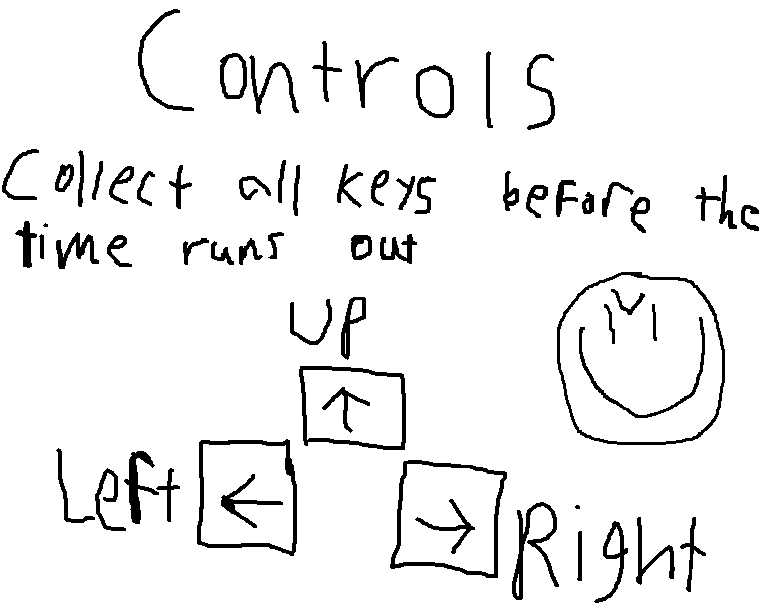 Controls
Collect all keys before the
time runs out
UP
Left
Right